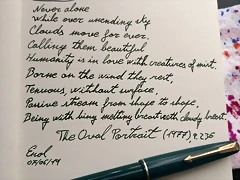 Never alone
While over unending sky
Clouds move for ever.
Calling them beautiful
Humanity is in love with creatures of mist.
Borne on the wind they rest,
Tenuous, without surface,
Passive stream from shape to shape,
Being with being melting breast with cloudy breast.
The Oval Portrait (1977), 
Erol